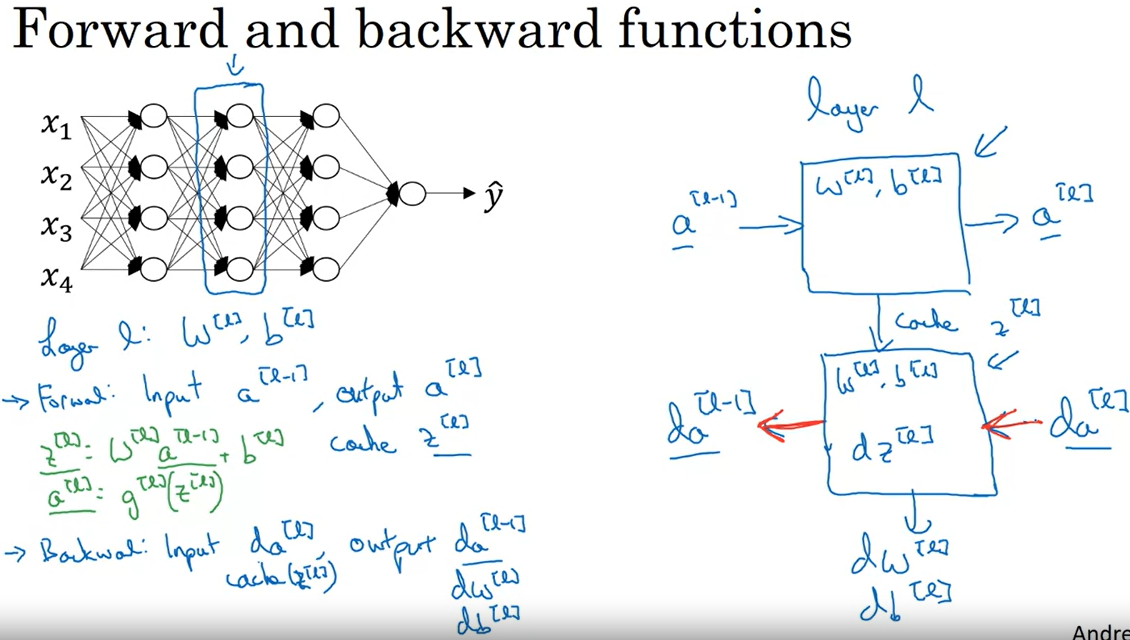 Forward and backward functions
x1
x2
x3
x4
ŷ
Layer l: W[l], b[l]
→ Forward: Input a[l-1], output a[l]
cache z[l]
z[l] = W[l] a[l-1] + b[l]
a[l] = g[l](z[l])
→ Backward: Input da[l], output da[l-1]
cache(z[l])
dW[l]
db[l]
layer l
W[l], b[l]
a[l-1]
a[l]
cache z[l]
W[l], b[l]
da[l-1]
dz[l]
da[l]
dW[l]
db[l]
Andre